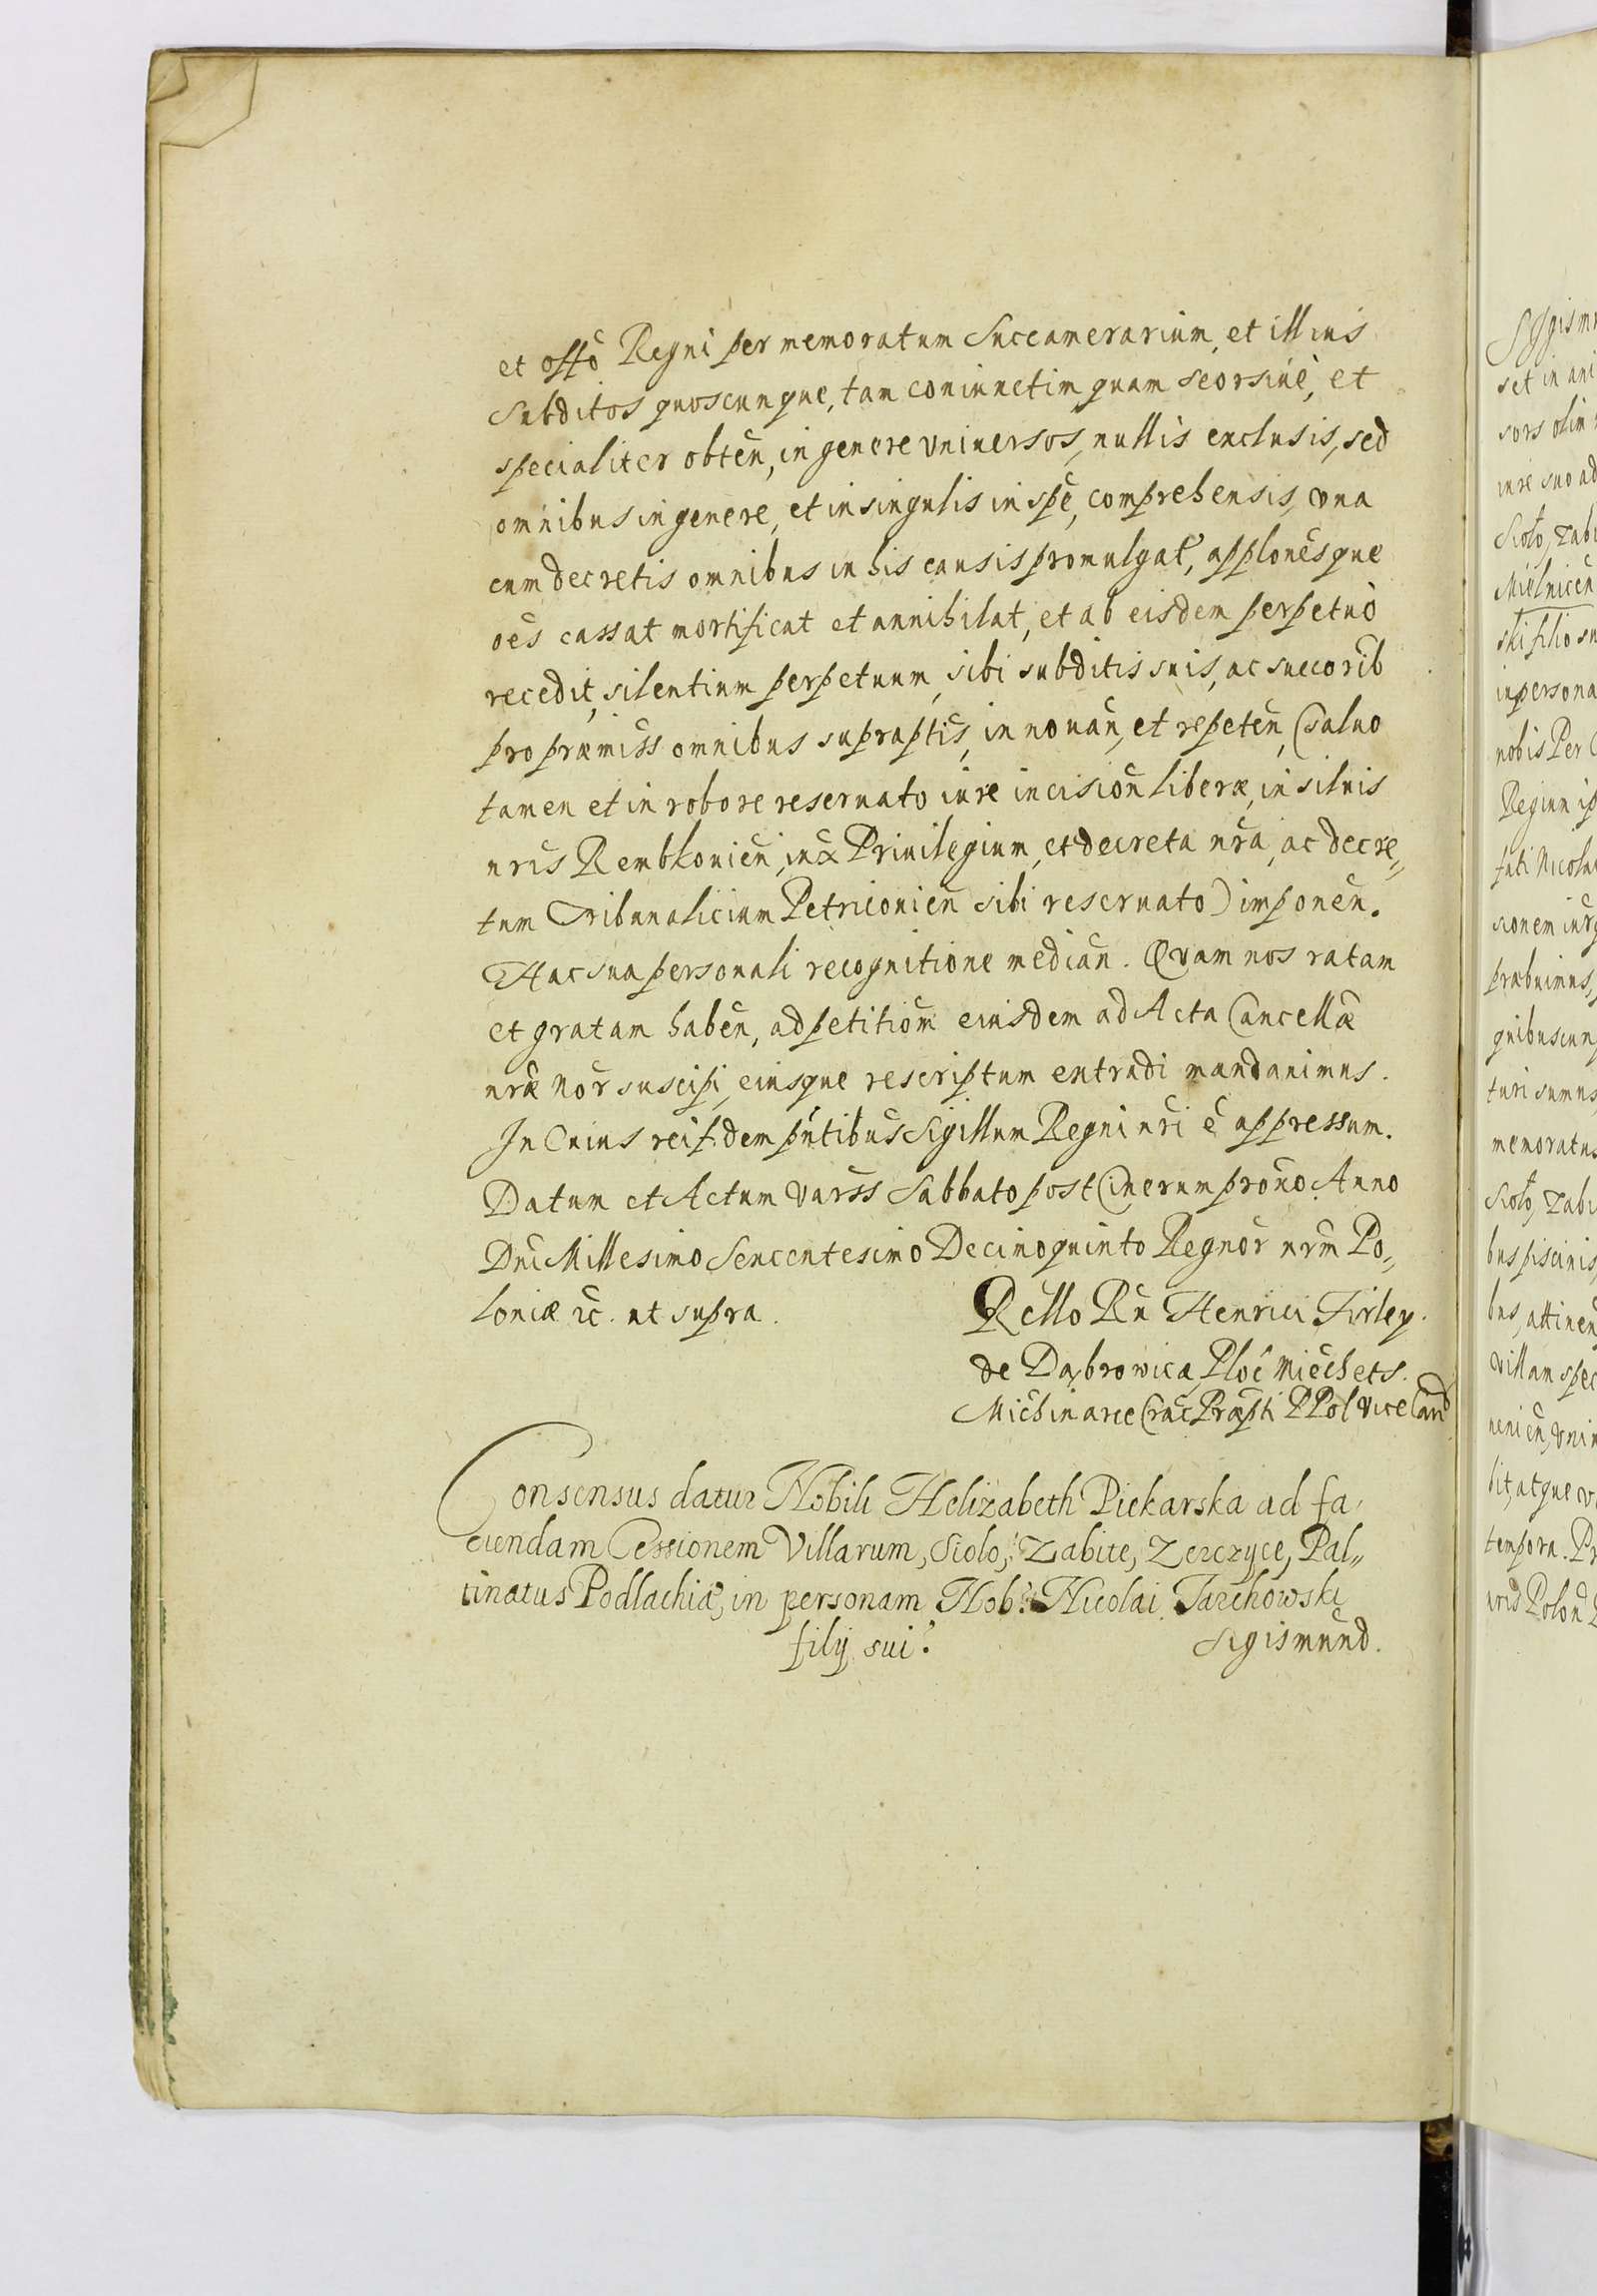 et offo Regni per memoratum Succamerarium, et illius
Subditos quoscunque, tam coniunctim quam seorsiue, et
specialiter obten, in genere vniuersos, nullis exclusis, sed
omnibus in genere, et in singulis in spe, comprehensis, vna
cum decretis omnibus in his causis promulgat, applonesque
oes cassat mortificat et annihilat, et ab eisdem perpetuò
recedit, silentium perpetuum, sibi subditis suis, ac succorib
pro præmiss omnibus supraptis, in nouan, et repeten, (saluo
tamen et in robore reseruato iure incision liberæ, in siluis
nris Rembkouien, iux Priuilegium, et decreta nra, ac decre„
tum Tribunalicium Petricouien sibi reseruato) imponen.
Hac sua personali recognitione median. Quam nos ratam
et gratam haben, ad petitiom eiusdem ad Acta Cancellæ
nræ nor suscipi, eiusque rescriptum extradi mandauimus.
In Cuius rei f. dem pntibus Sigillum Regni nri e appressum.
Datum et Actum Varss Sabbato post Cinerum prono Anno
Dni Millesimo Sexcentesimo Decimoquinto Regnor nrm Po„
loniæ zc. ut supra.
Rello Rn Henrici Firley.
de Dąbrowica, Ploc Miech ets.
Mich in arce Crac Præpti R Pol Vice Can
Consensus datur Nobili Helizabeth Piekarska ad fa,
ciendam Cessionem Villarum, Sioło, Zabite, Zerczyce, Pal„
tinatus Podlachiæ, in personam Nob: Nicolai Tarchowski
filij sui.
Sigismund.
Sygism
set in ani
sors olim
iure suo ad
Sioło, Zabi
Mielnicen
ski filio su
in persona
nobis Per
Reginn ip
fati Nicola
sionem iur
præbuimus,
quibuscunq
turi sumus,
memoratus
Sioło, Zabi
bus piscinis,
bus, attinen
villam spec
bit, atque v
tempora. Pr
uris Polon